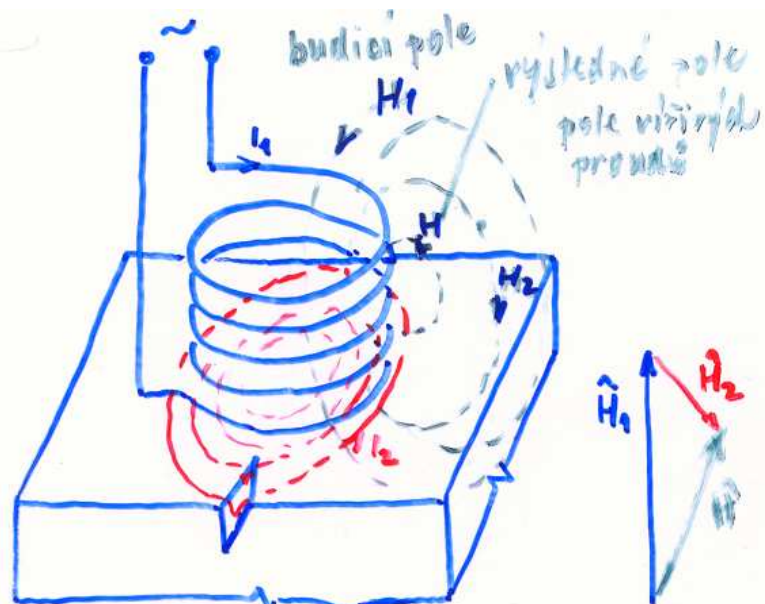 ~
budicí pole
H₁
výsledné pole
pole vířivých
proudů
I₁
H
H₂
I₂
H̃₁
H̃₂
H̃